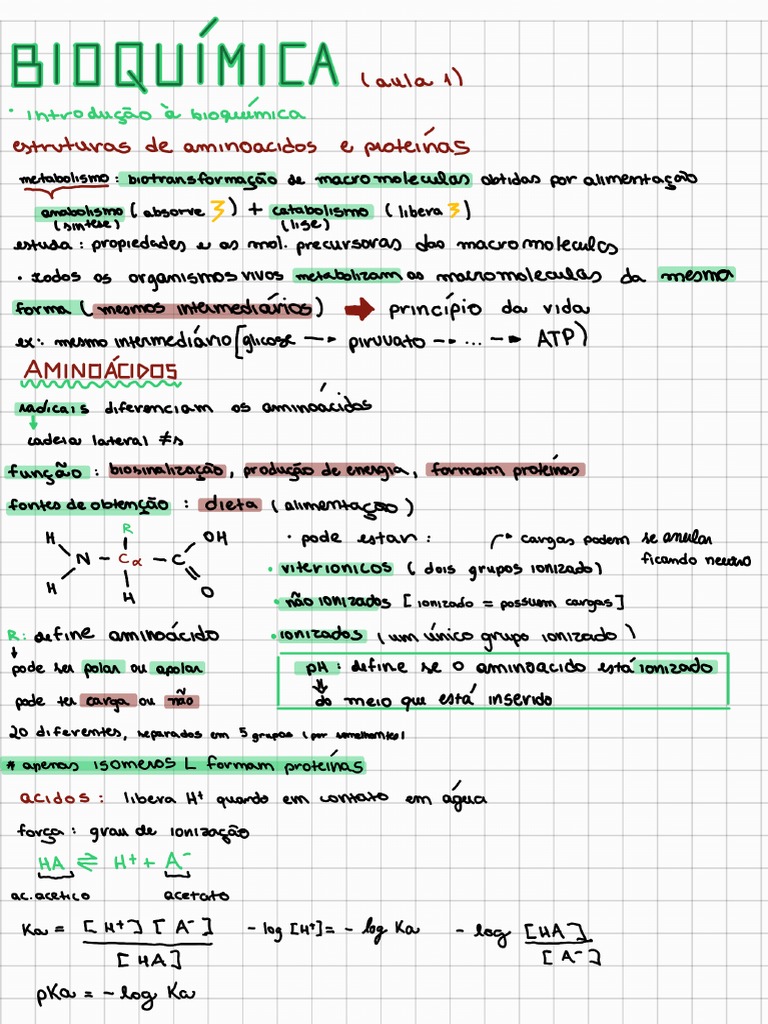 BIOQUÍMICA (aula 1)
· introdução à bioquímica
estruturas de aminoacidos e proteínas
metabolismo: biotransformação de macromoleculas obtidas por alimentação
anabolismo (absorve ) + catabolismo (libera )
(síntese) (lise)
estuda: propiedades e as mol. precursoras das macromoleculas
· todos os organismos vivos metabolizam as macromoleculas da mesma
forma (mesmos intermediários) → princípio da vida
ex: mesmo intermediário [glicose --→ piruvato --→ ... --→ ATP)
AMINOÁCIDOS
radicais diferenciam os aminoácidos
↓
cadeia lateral ≠s
função: biosinalização, produção de energia, formam proteínas
fontes de obtenção: dieta (alimentação)
H R OH
N - Cα - C
H H O
· pode estar: → cargas podem se anular
ficando neutro
· viterionicos (dois grupos ionizado)
· não ionizados [ionizado = possuem cargas]
· ionizados (um único grupo ionizado)
R: define aminoácido
↓
pode ser polar ou apolar
pode ter carga ou não
pH: define se o aminoacido está ionizado
⇓
do meio que está inserido
20 diferentes, separados em 5 grupos (por semelhantes)
* apenas isomeros L formam proteínas
acidos: libera H+ quando em contato em água
força: grau de ionização
HA ⇌ H+ + A-
ac. acetico acetato
Ka = [H+] [A-] / [HA] - log [H+] = - log Ka - log [HA] / [A-]
pKa = - log Ka